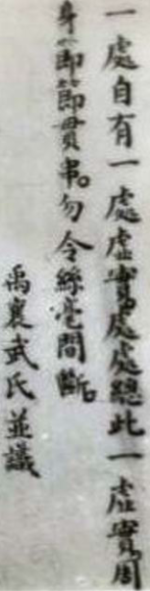 一處自有一處虛實處處總此一虛實周
身節節貫串。勿令絲毫間斷。
禹襄武氏並議